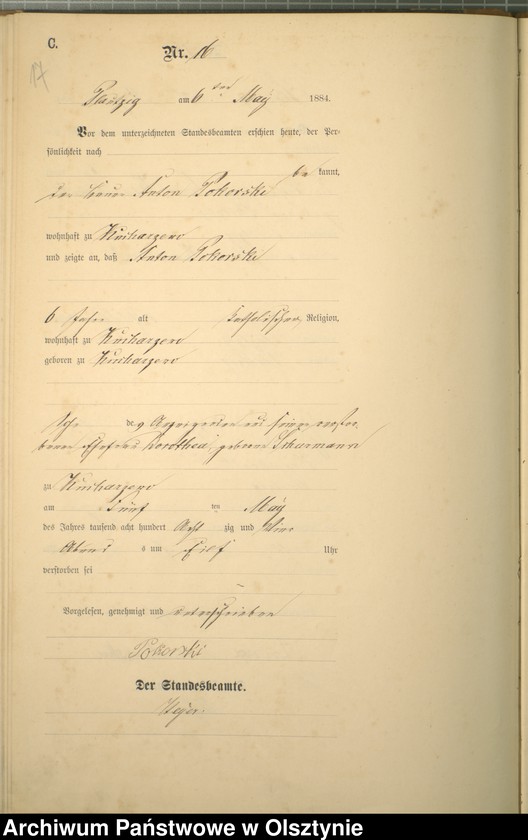 C.
Nr. 16
17
am 6 ten May 1884.
Vor dem unterzeichneten Standesbeamten erschien heute, der Per-
sönlichkeit nach
be kannt,
der Anton Pokorski
wohnhaft zu
und zeigte an, daß Anton Pokorski
6 Jahr alt katholischer Religion,
wohnhaft zu
geboren zu
Sohn des Anzeigenden und seiner verstor
benen Ehefrau Dorothea, geborene
zu
am Fünf ten May
des Jahres tausend acht hundert Acht zig und Vier
Abend s um Elf Uhr
verstorben sei
Vorgelesen, genehmigt und unterschrieben
Pokorski
Der Standesbeamte.
Archiwum Państwowe w Olsztynie